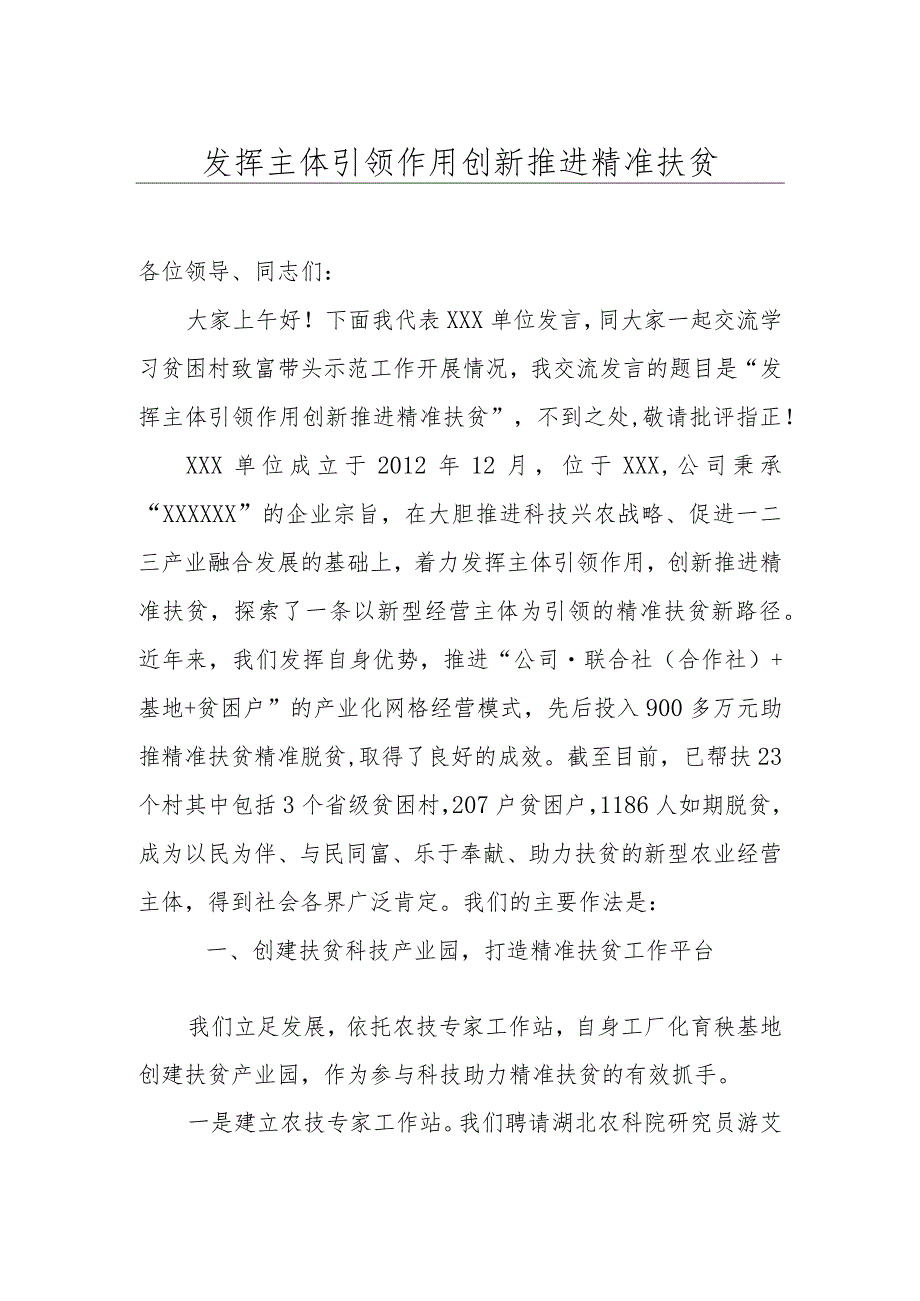 发挥主体引领作用创新推进精准扶贫
各位领导、同志们：
大家上午好！下面我代表 XXX 单位发言,同大家一起交流学
习贫困村致富带头示范工作开展情况，我交流发言的题目是“发
挥主体引领作用创新推进精准扶贫”，不到之处,敬请批评指正！
XXX 单位成立于 2012 年 12 月，位于 XXX,公司秉承
“XXXXXX”的企业宗旨，在大胆推进科技兴农战略、促进一二
三产业融合发展的基础上，着力发挥主体引领作用，创新推进精
准扶贫，探索了一条以新型经营主体为引领的精准扶贫新路径。
近年来，我们发挥自身优势，推进“公司·联合社（合作社）+
基地+贫困户”的产业化网格经营模式，先后投入 900 多万元助
推精准扶贫精准脱贫,取得了良好的成效。截至目前，已帮扶 23
个村其中包括 3 个省级贫困村,207 户贫困户,1186 人如期脱贫，
成为以民为伴、与民同富、乐于奉献、助力扶贫的新型农业经营
主体，得到社会各界广泛肯定。我们的主要作法是：
一、创建扶贫科技产业园，打造精准扶贫工作平台
我们立足发展，依托农技专家工作站，自身工厂化育秧基地
创建扶贫产业园，作为参与科技助力精准扶贫的有效抓手。
一是建立农技专家工作站。我们聘请湖北农科院研究员游艾